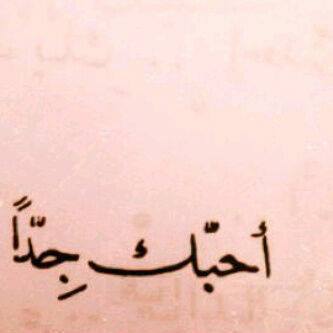 أحبّك جِدّاً